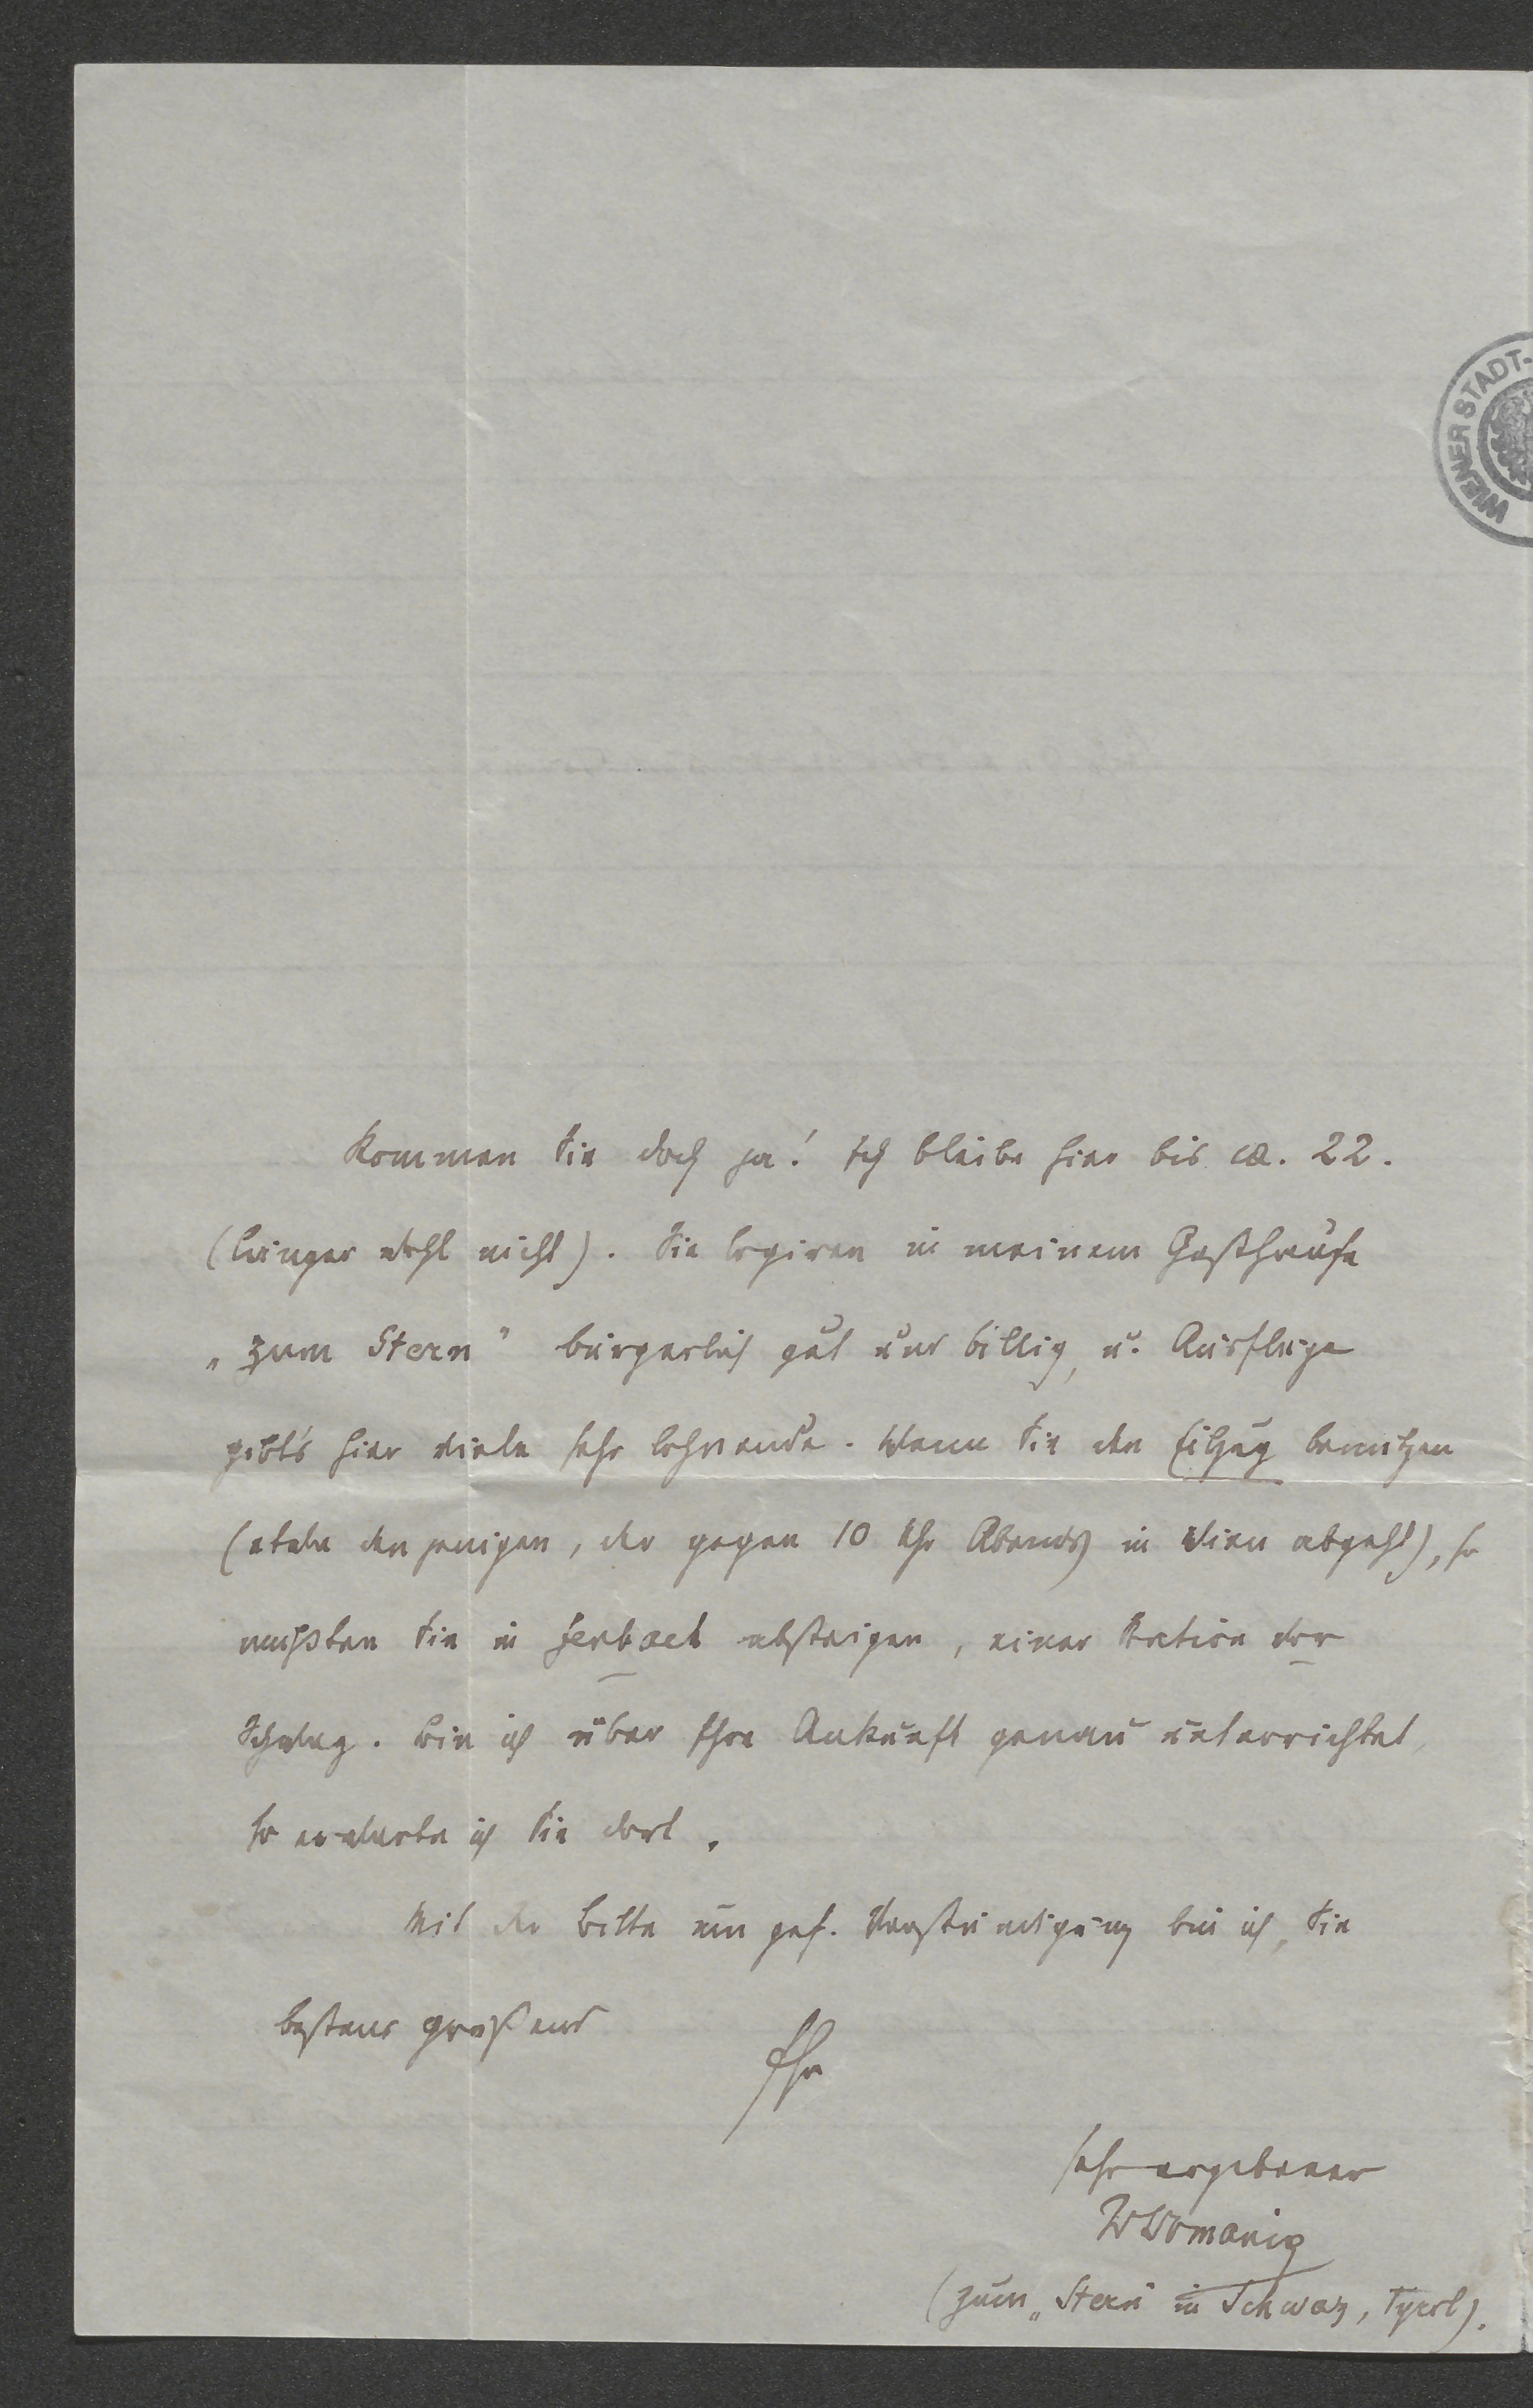 WIENER STADT-
Kommen Sie doch ja! Ich bleibe hier bis ca. 22.
(länger wohl nicht). Sie logiren in meinem Gasthause
„zum Stern" bürgerlich gut und billig, u. Ausflüge
gibt's hier viele sehr lohnende. Wenn Sie den Eilzug benützen
(etwa denjenigen, der gegen 10 Uhr Abends in Wien abgeht), so
müßten Sie in Jenbach absteigen, einer Station vor
Schwaz. Bin ich über Ihre Ankunft genau unterrichtet,
so erwarte ich Sie dort.
Mit der Bitte um gef. Verständigung bin ich, Sie
bestens grüßend
Ihr
sehr ergebener
(zum „Stern" in Schwaz, Tyrol).